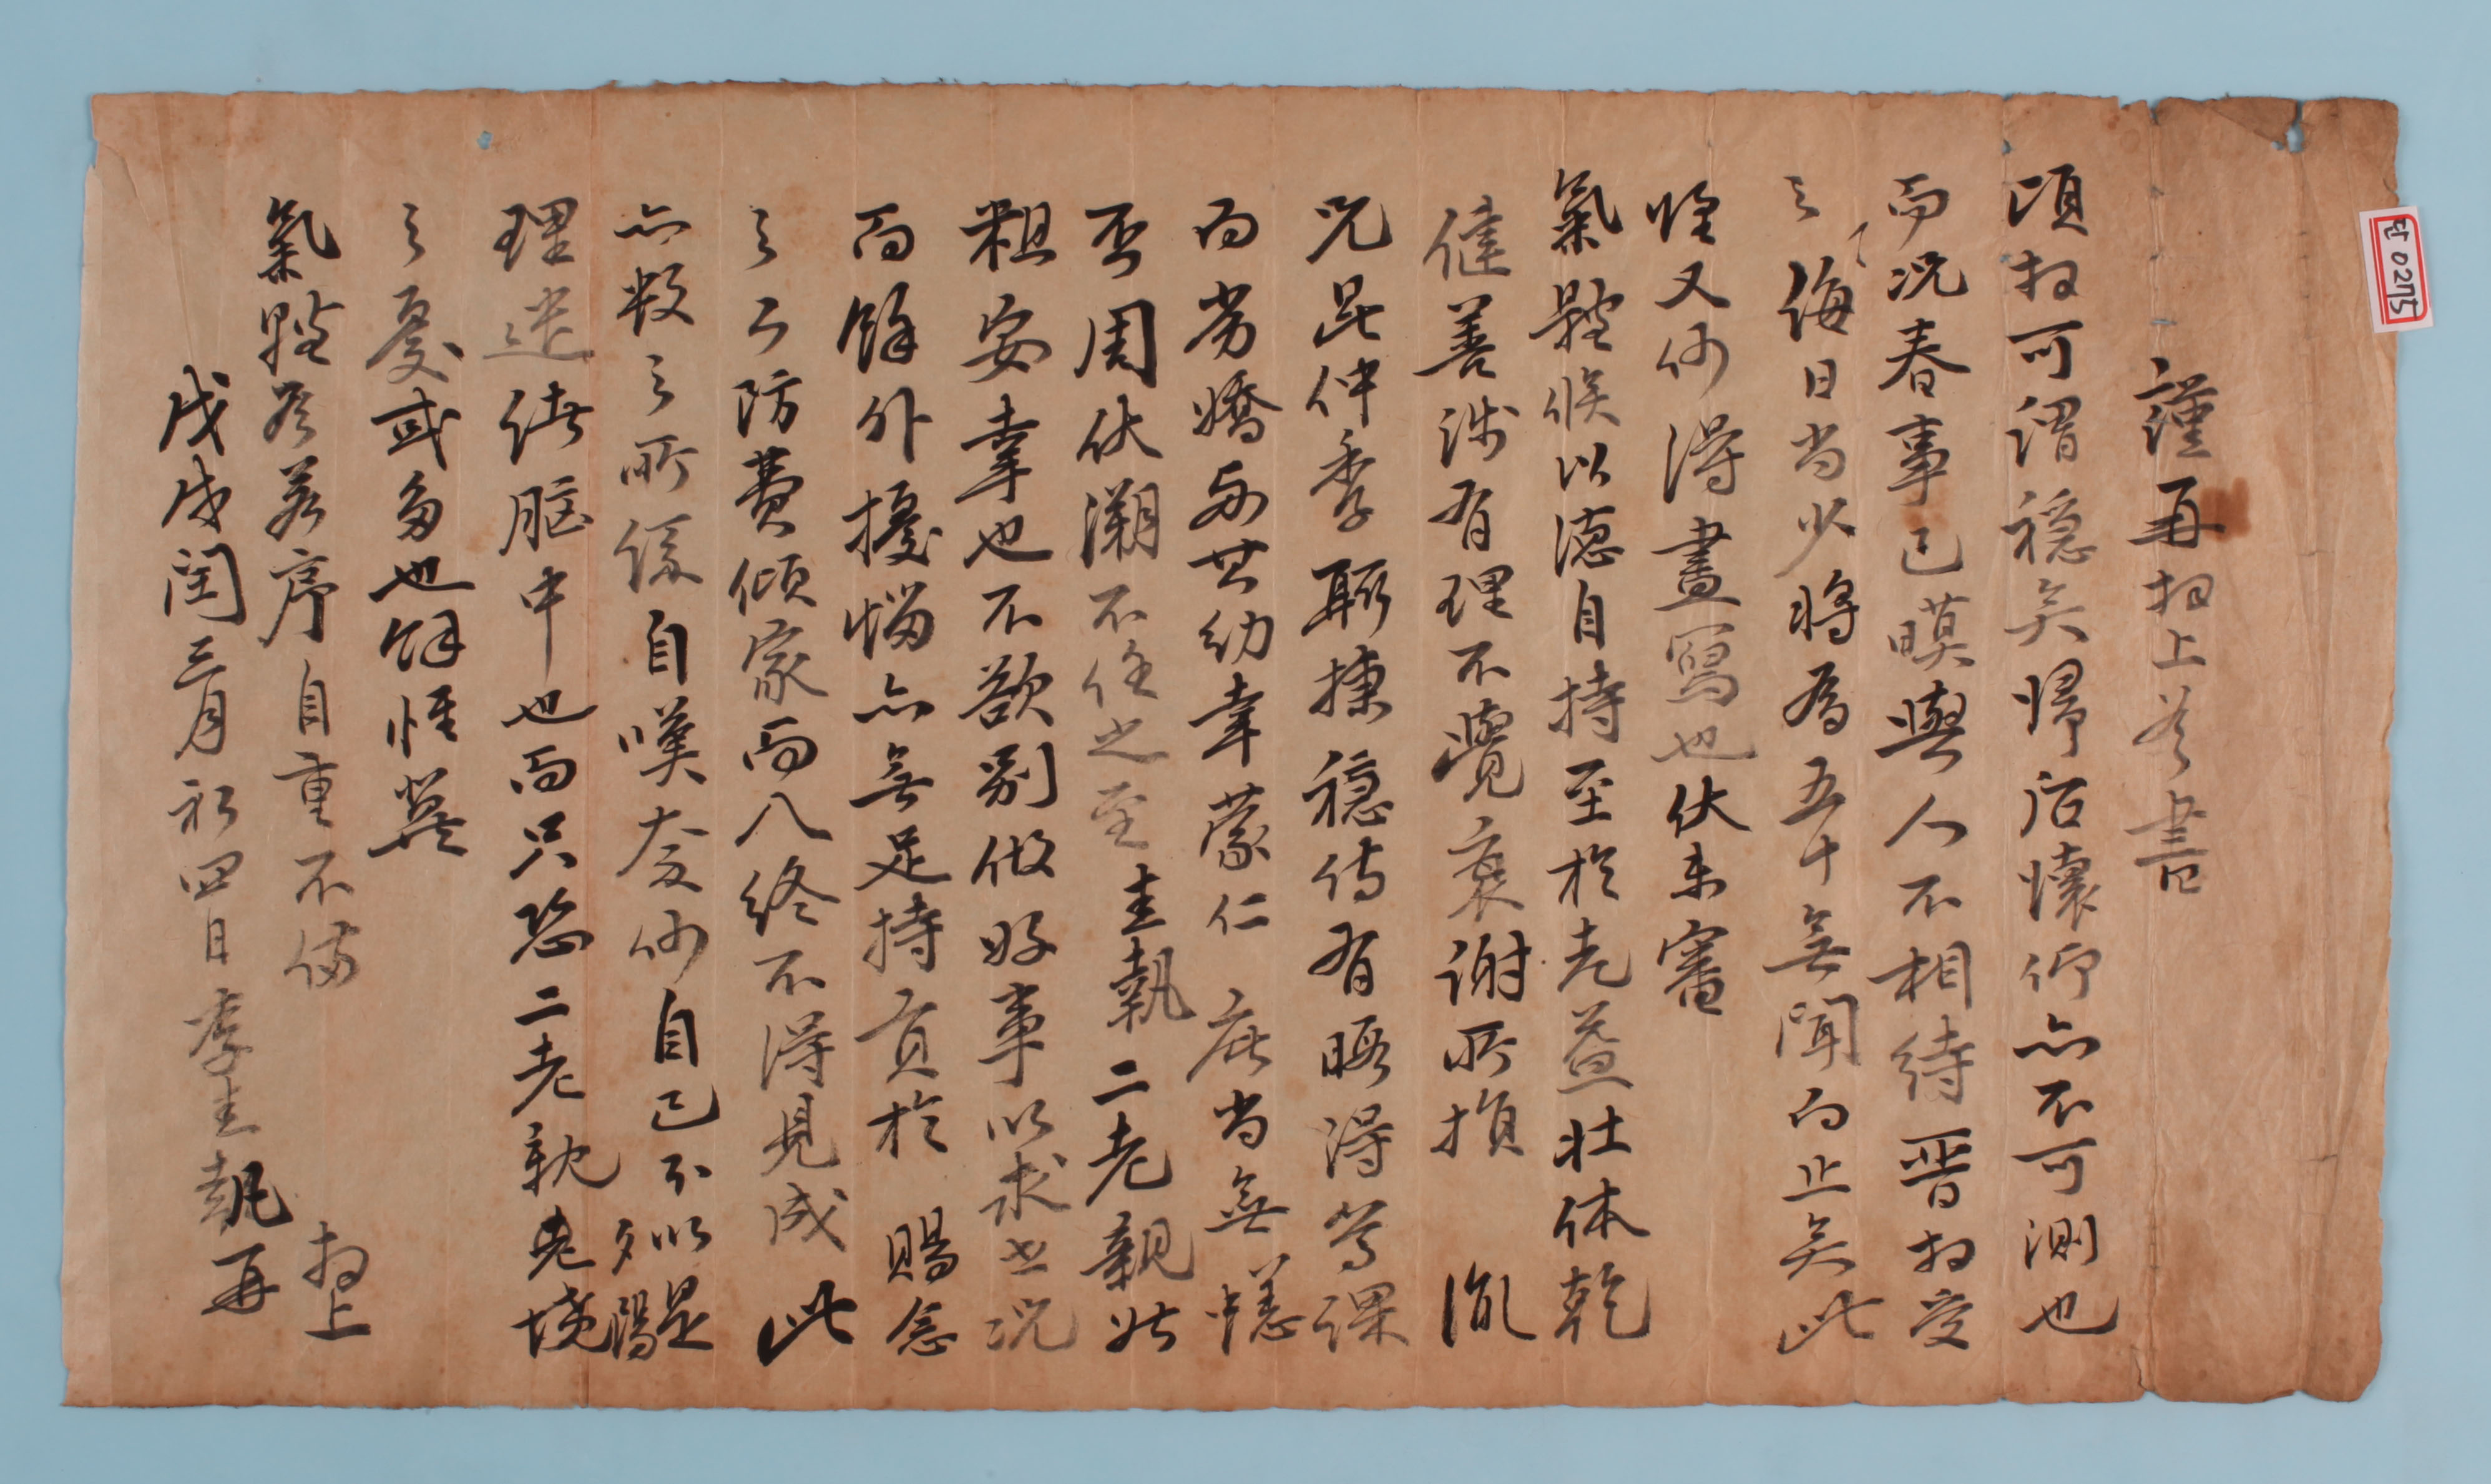 謹再拜上答書
頃拜可謂穩矣歸后懷仰亦不可測也
而况春事已暯與人不相待晋拜受
之誨日尚少將爲五十無聞而止矣此
恠又何得盡寫也伏未審
氣體候以德自持至於老益壯体乾
健善涉有理不覺衰謝所損 胤
兄昆仲季聯棣穩侍有暇得着課
而劳嬌與其幼幸蒙仁庇尚無恙
否周伏溯不任之至圭執二老親姑
粗安幸也不欲别做好事以求也况
而餘外擾惱亦無足持貢於 賜念
之公防費傾家而八終不得見成此
亦数之所係自嘆奈何自己不以是
理遣結脳中也而只恐二老親老境夕陽
之憂或多也餘惟冀
氣體若序自重不備 拜上
戊戌閏三月初四日李圭執再
전 0275